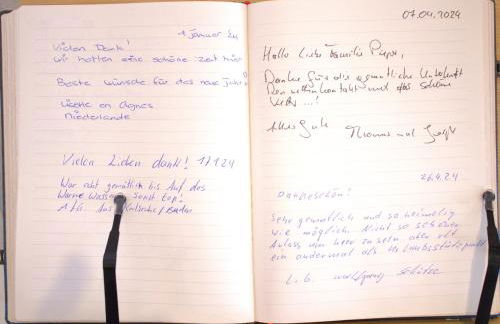 1 Januar 24
Vielen Dank!
Wir hatten eine schöne Zeit hier
Beste Wünsche für das neue Jahr
en Agnes
Niederlande
Vielen Lieben dank! 1/1 24
War echt gemütlich bis Auf das
Warme Wasser. Sonst top!
Aus Karlsruhe/Berlin
07.04.2024
Hallo Liebe Familie
Danke für die gemütliche Unterkunft
Den netten Kontakt und das schöne
Alles Gute Thomas und
26.4.24
Dankeschön!
Sehr gemütlich und so heimelig
wie möglich. Nicht so schönen
Anlass um hier zu sein aber oft
ein andermal als Urlaubsstützpunkt
L.G. Wolfgang